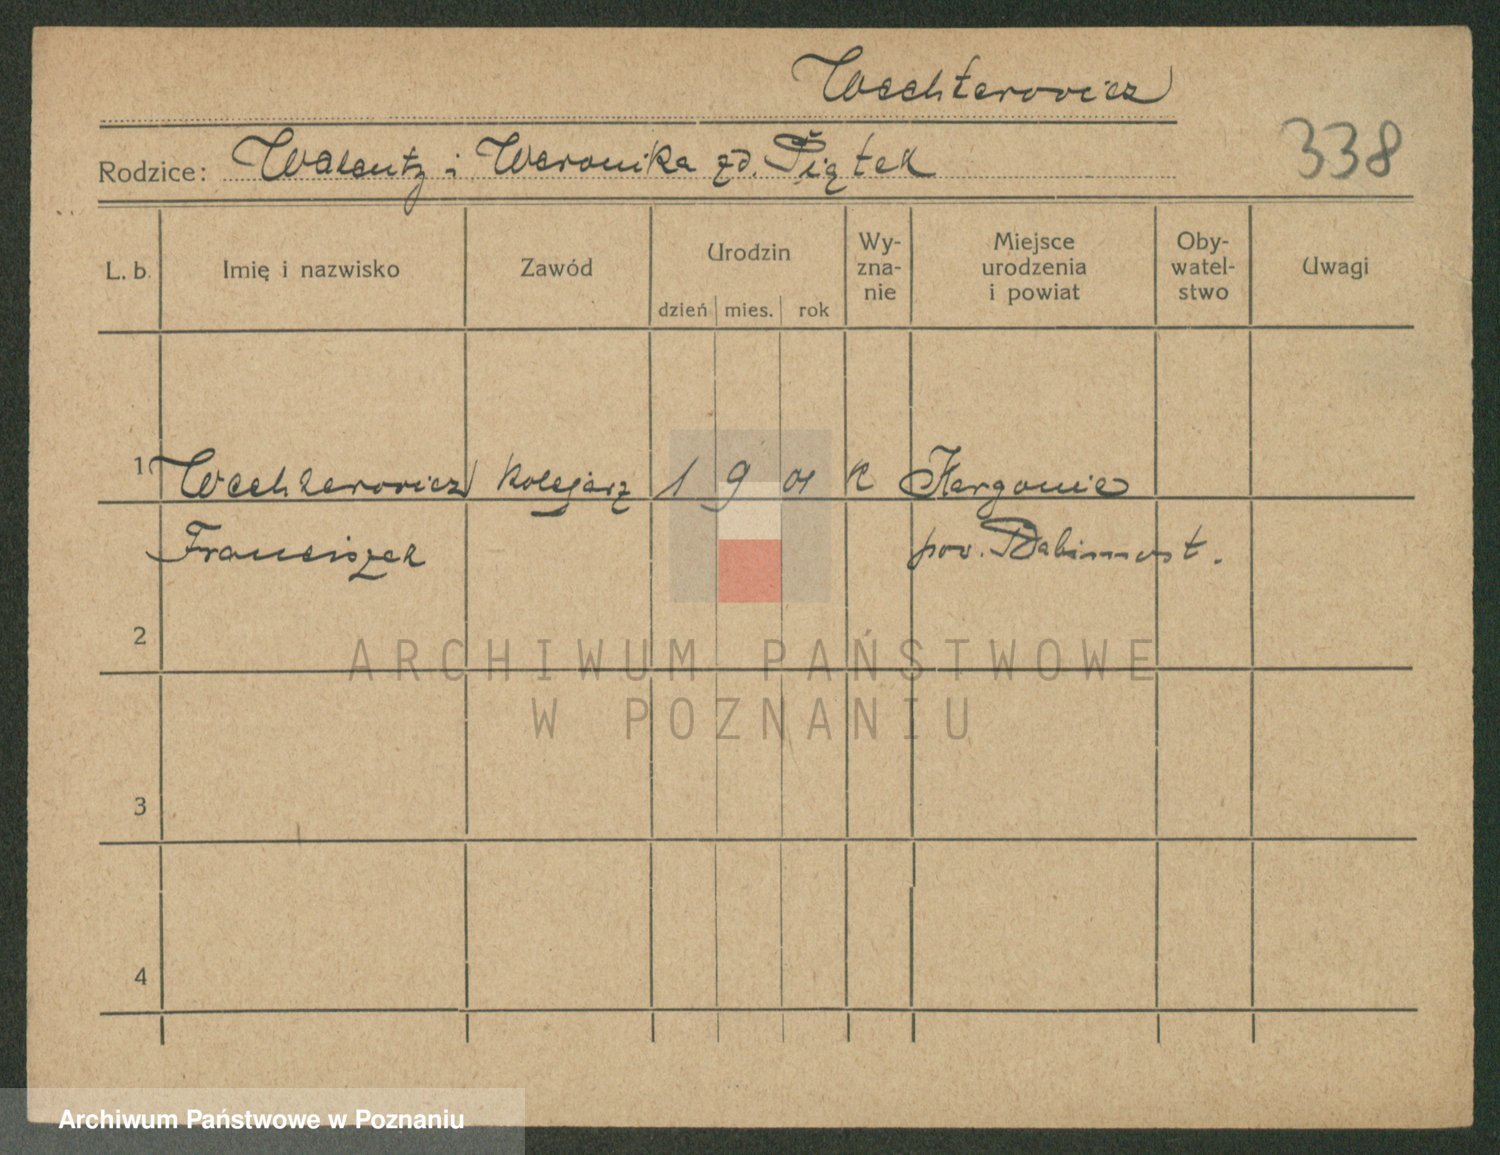 Wechterowicz
338
Rodzice: Walenty i Weronika zd. Piątek
L. b. Imię i nazwisko Zawód Urodzin dzień mies. rok Wy-zna-nie Miejsce urodzenia i powiat Oby-watel-stwo Uwagi
1 Wechterowicz kolejarz 1 9 01 k Kargowie
Franciszek pow. Babimost.
2
ARCHIWUM PAŃSTWOWE
W POZNANIU
3
4
Archiwum Państwowe w Poznaniu